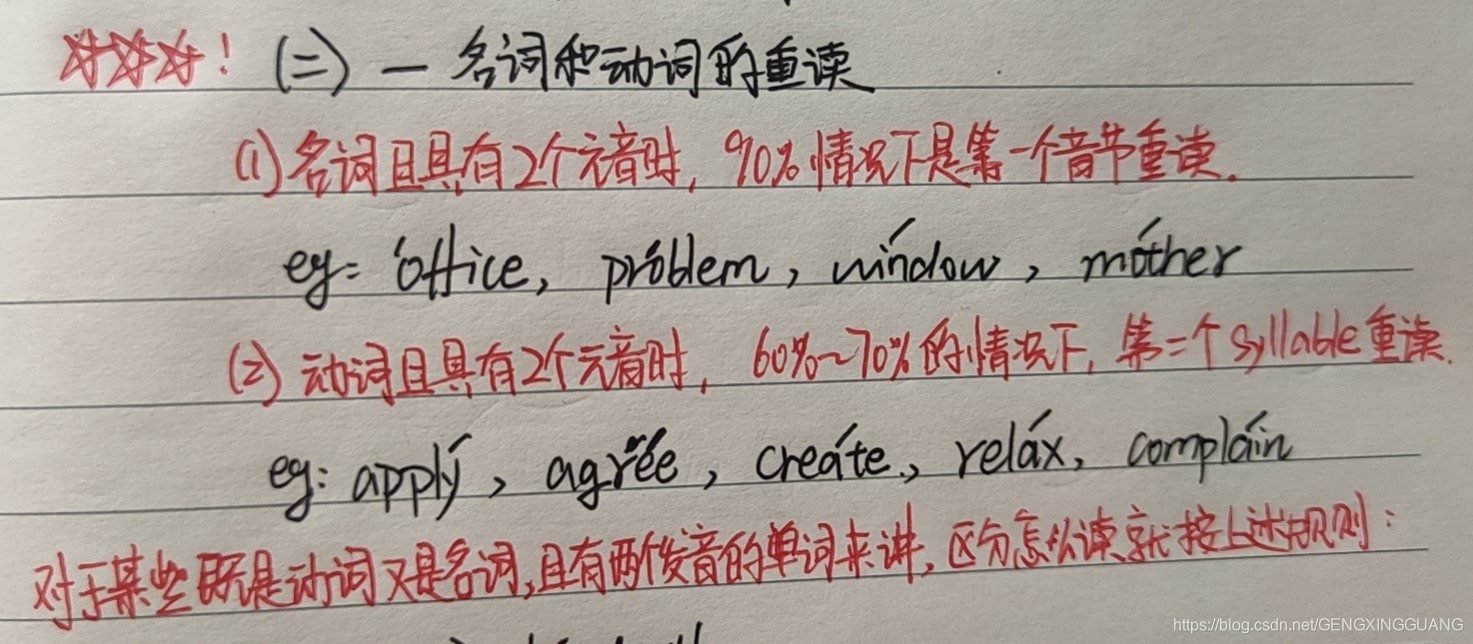 ☆☆☆! (二) — 名词和动词的重读
(1) 名词且具有2个元音时, 90%情况下是第一个音节重读.
eg: óffice, próblem, wíndow, móther
(2) 动词且具有2个元音时, 60%~70%的情况下, 第二个syllable重读.
eg: applý, agrée, creáte, reláx, compláin
对于某些既是动词又是名词,且有两个发音的单词来讲,区分怎么读就按上述规则:
https://blog.csdn.net/GENGXINGGUANG